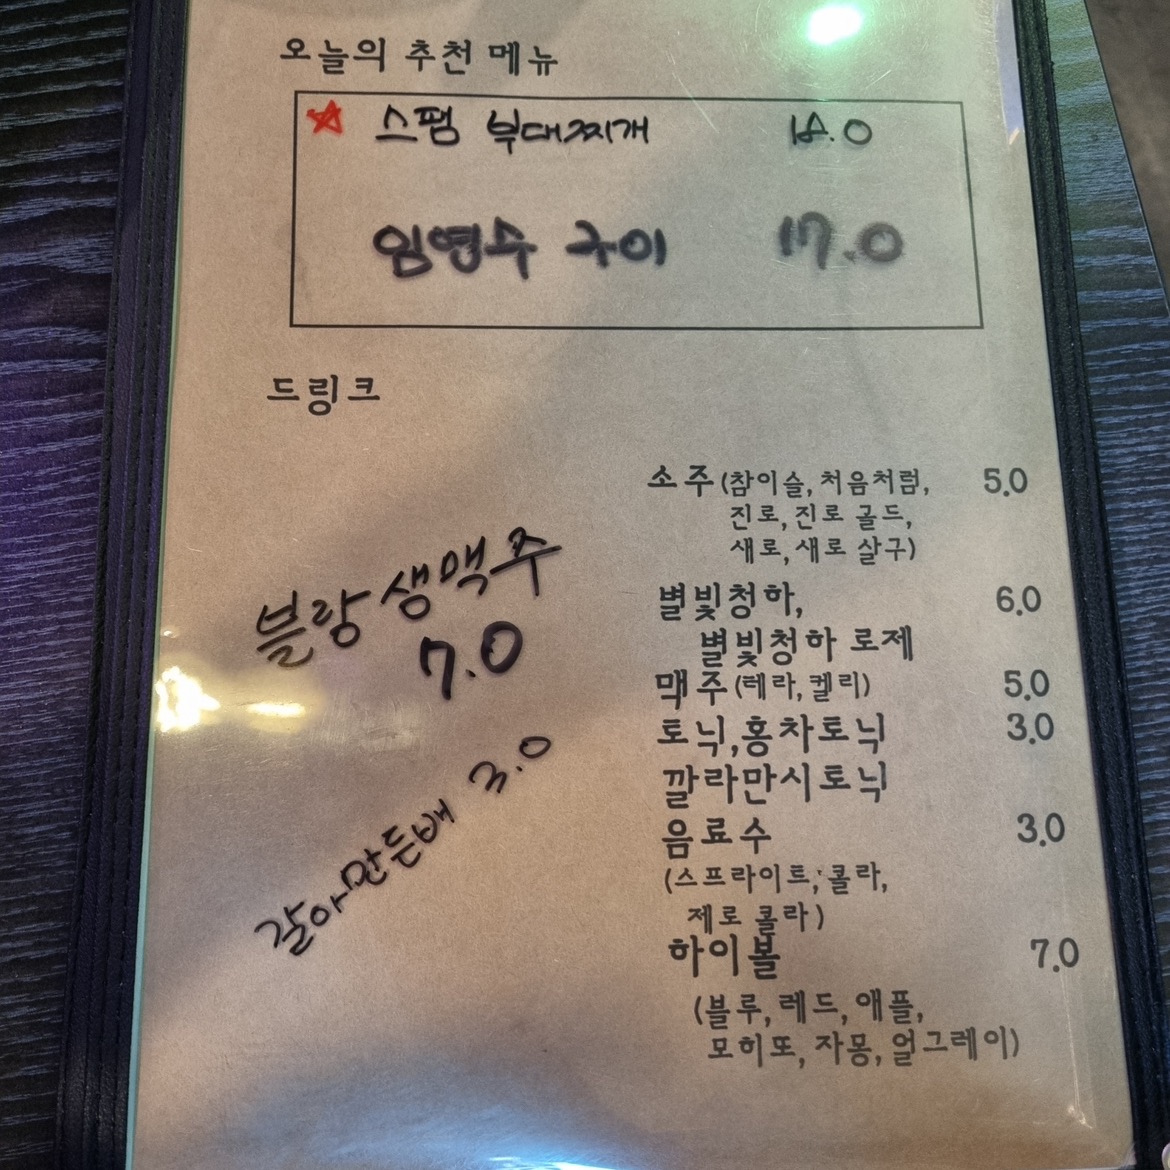 오늘의 추천 메뉴
스팸 부대찌개
임연수 구이 17.0
드링크
블랑 생맥주
7.0
갈아만든배 3.0
소주 (참이슬, 처음처럼, 5.0
진로, 진로 골드,
새로, 새로 살구)
별빛청하, 6.0
별빛청하 로제
맥주 (테라, 켈리) 5.0
토닉, 홍차토닉 3.0
깔라만시토닉
음료수 3.0
(스프라이트, 콜라,
제로 콜라)
하이볼 7.0
(블루, 레드, 애플,
모히또, 자몽, 얼그레이)